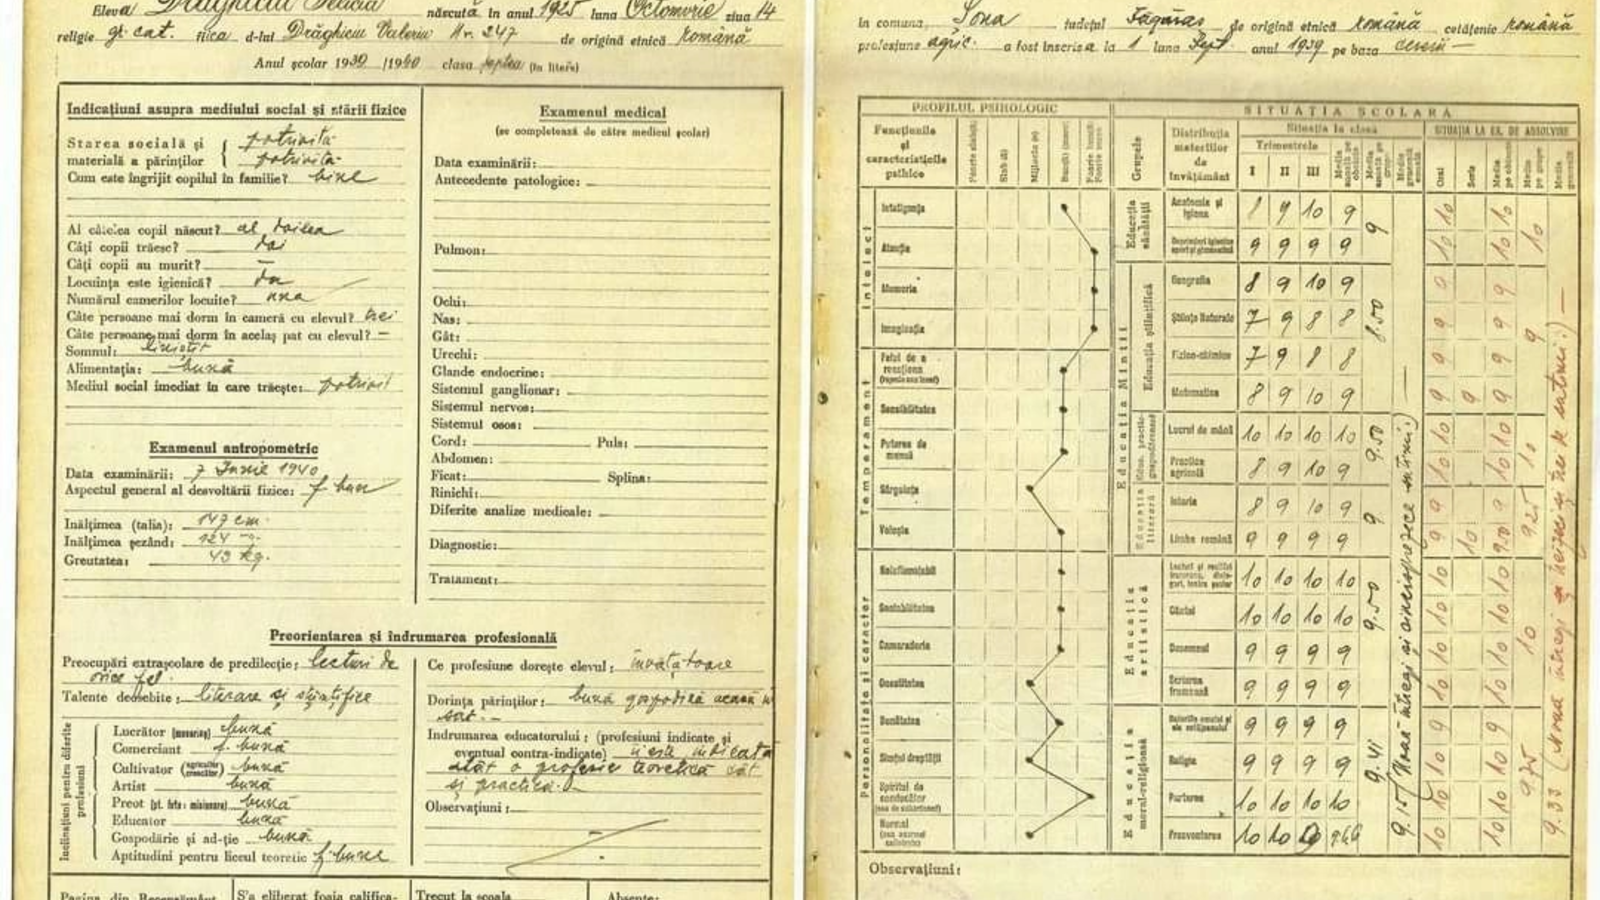 Eleva Drăghiciu Felicia născută în anul 1925 luna Octomvrie ziua 14
religie gr. cat. fiica d-lui Drăghiciu Valeriu Nr. 247 de origină etnică română
Anul școlar 1939/1940 clasa șaptea (în litere)
Indicațiuni asupra mediului social și stării fizice
Starea socială și potrivită
materială a părinților potrivită
Cum este îngrijit copilul în familie? bine
Al câtelea copil născut? al doilea
Câți copii trăesc? doi
Câți copii au murit? —
Locuința este igienică? da
Numărul camerilor locuite? una
Câte persoane mai dorm în cameră cu elevul? trei
Câte persoane mai dorm în acelaș pat cu elevul? —
Somnul: liniștit
Alimentația: bună
Mediul social imediat în care trăește: potrivit
Examenul antropometric
Data examinării: 7 Iunie 1940
Aspectul general al desvoltării fizice: f. bun
Inălțimea (talia): 147 cm.
Inălțimea șezând: 124
Greutatea: 43 kg.
Examenul medical
(se completează de către medicul școlar)
Data examinării:
Antecedente patologice:
Pulmon:
Ochi:
Nas:
Gât:
Urechi:
Glande endocrine:
Sistemul ganglionar:
Sistemul nervos:
Sistemul osos:
Cord: Puls:
Abdomen:
Ficat: Splina:
Rinichi:
Diferite analize medicale:
Diagnostic:
Tratament:
Preorientarea și îndrumarea profesională
Preocupări extrașcolare de predilecție: lecturi de
orice fel.
Talente deosebite: literare și științifice
Inclinațiuni pentru diferite profesiuni
Lucrător bună
Comerciant f. bună
Cultivator bună
Artist bună
Preot (pt. fete: misionare) bună
Educator bună
Gospodărie și ad-ție bună
Aptitudini pentru liceul teoretic f. bune
Ce profesiune dorește elevul: învățătoare
Dorința părinților: bună gospodină acasă în
sat. -
Indrumarea educatorului: (profesiuni indicate și
eventual contra-indicate) îi este indicată
atât o profesie teoretică cât
și practică. -
Observațiuni:
Pagina din Recensământ
S'a eliberat foaia califica-
Trecut la școala
Absente:
în comuna Șona județul Făgăraș de origină etnică română cetățenie română
profesiune agric. a fost înscrisă la 1 luna Sept. anul 1939 pe baza cererii —
PROFILUL PSIHOLOGIC
Funcțiunile
și
caracteristicile
psihice
Foarte slabă
Slab
Mijlocie
Bună
Foarte bună
Intelect
Inteligența
Atenția
Memoria
Imaginația
Temperament
Felul de a
reacționa
Sensibilitatea
Puterea de
muncă
Sârguința
Voioșia
Personalitate și caracter
Sociabilitatea
Camaraderia
Onestitatea
Bunătatea
Simțul dreptății
Spiritul de
conducător
Normal
SITUAȚIA ȘCOLARĂ
Grupele
Distribuția
materiilor
de
învățământ
Situația la clasă
Trimestrele
I II III
SITUAȚIA LA EX. DE ABSOLVIRE
Oral
Scris
Educația sănătății
Anatomia și
igiena 9 10 9 10 10
9 9 9 9 10 10
9 10
Educația Minții
Educația științifică
Geografia 8 9 10 9 9 9
Științe Naturale 7 9 8 8 9 9
Fizico-chimice 7 9 8 8 9 9
Matematica 8 9 10 9 9 9 9
8.50 9
Lucrul de mână 10 10 10 10 10 10
Practica
agricolă 8 9 10 9 10 10
9.50 10
Educația literară
Istoria 8 9 10 9 9 9
Limba română 9 9 9 9 9 10 9.50
9 9.25
Educația artistică
10 10 10 10 10 10
Cântul 10 10 10 10 10 10
Desemnul 9 9 9 9 10 10
Scrierea
frumoasă 9 9 9 9 10 10
9.50 10
Educația moral-religioasă
9 9 9 9 9 9
Religia 9 9 9 9 10 10
Purtarea 10 10 10 10 10 10
Frecventarea 10 10 10 10
9.41 9.75
9.15 (Nouă întregi și cincisprezece sutimi) —
9.33 (Noua întregi și treizeci și trei de sutimi) —
Observațiuni: